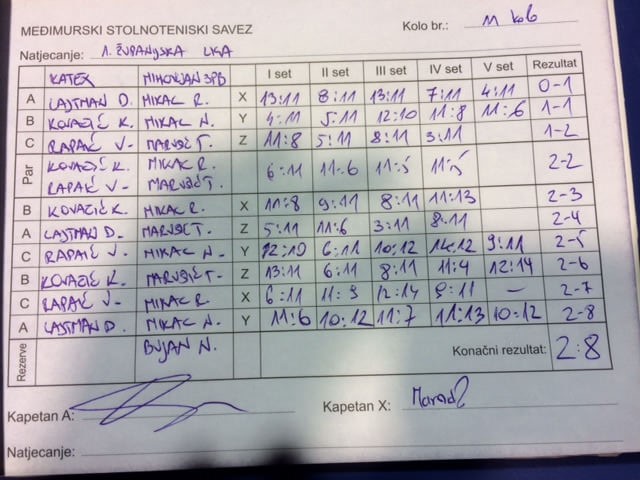 MEĐIMURSKI STOLNOTENISKI SAVEZ
Kolo br.: 11 kolo
Natjecanje: 1. ŽUPANIJSKA LIGA
KATEX MIHOVLJAN SPB I set II set III set IV set V set Rezultat
A LAJTMAN D. MIKAC R. X 13:11 8:11 13:11 7:11 4:11 0-1
B KOVAČIĆ K. MIKAC N. Y 4:11 5:11 12:10 11:8 11:6 1-1
C RAPAIĆ V. MARUŠIĆ T. Z 11:8 5:11 8:11 3:11 1-2
Par KOVAČIĆ K. MIKAC R. 6:11 11:6 11:5 11:5 2-2
RAPAIĆ V. MARUŠIĆ T.
B KOVAČIĆ K. MIKAC R. X 11:8 9:11 8:11 11:13 2-3
A LAJTMAN D. MARUŠIĆ T. Z 5:11 11:6 3:11 8:11 2-4
C RAPAIĆ V. MIKAC N. Y 12:10 6:11 10:12 14:12 9:11 2-5
B KOVAČIĆ K. MARUŠIĆ T. Z 13:11 6:11 8:11 11:4 12:14 2-6
C RAPAIĆ V. MIKAC R. X 6:11 11:9 12:14 9:11 – 2-7
A LAJTMAN D. MIKAC N. Y 11:6 10:12 11:7 11:13 10:12 2-8
Rezerve BUJAN N. Konačni rezultat: 2:8
Kapetan A: Kapetan X:
Natjecanje: